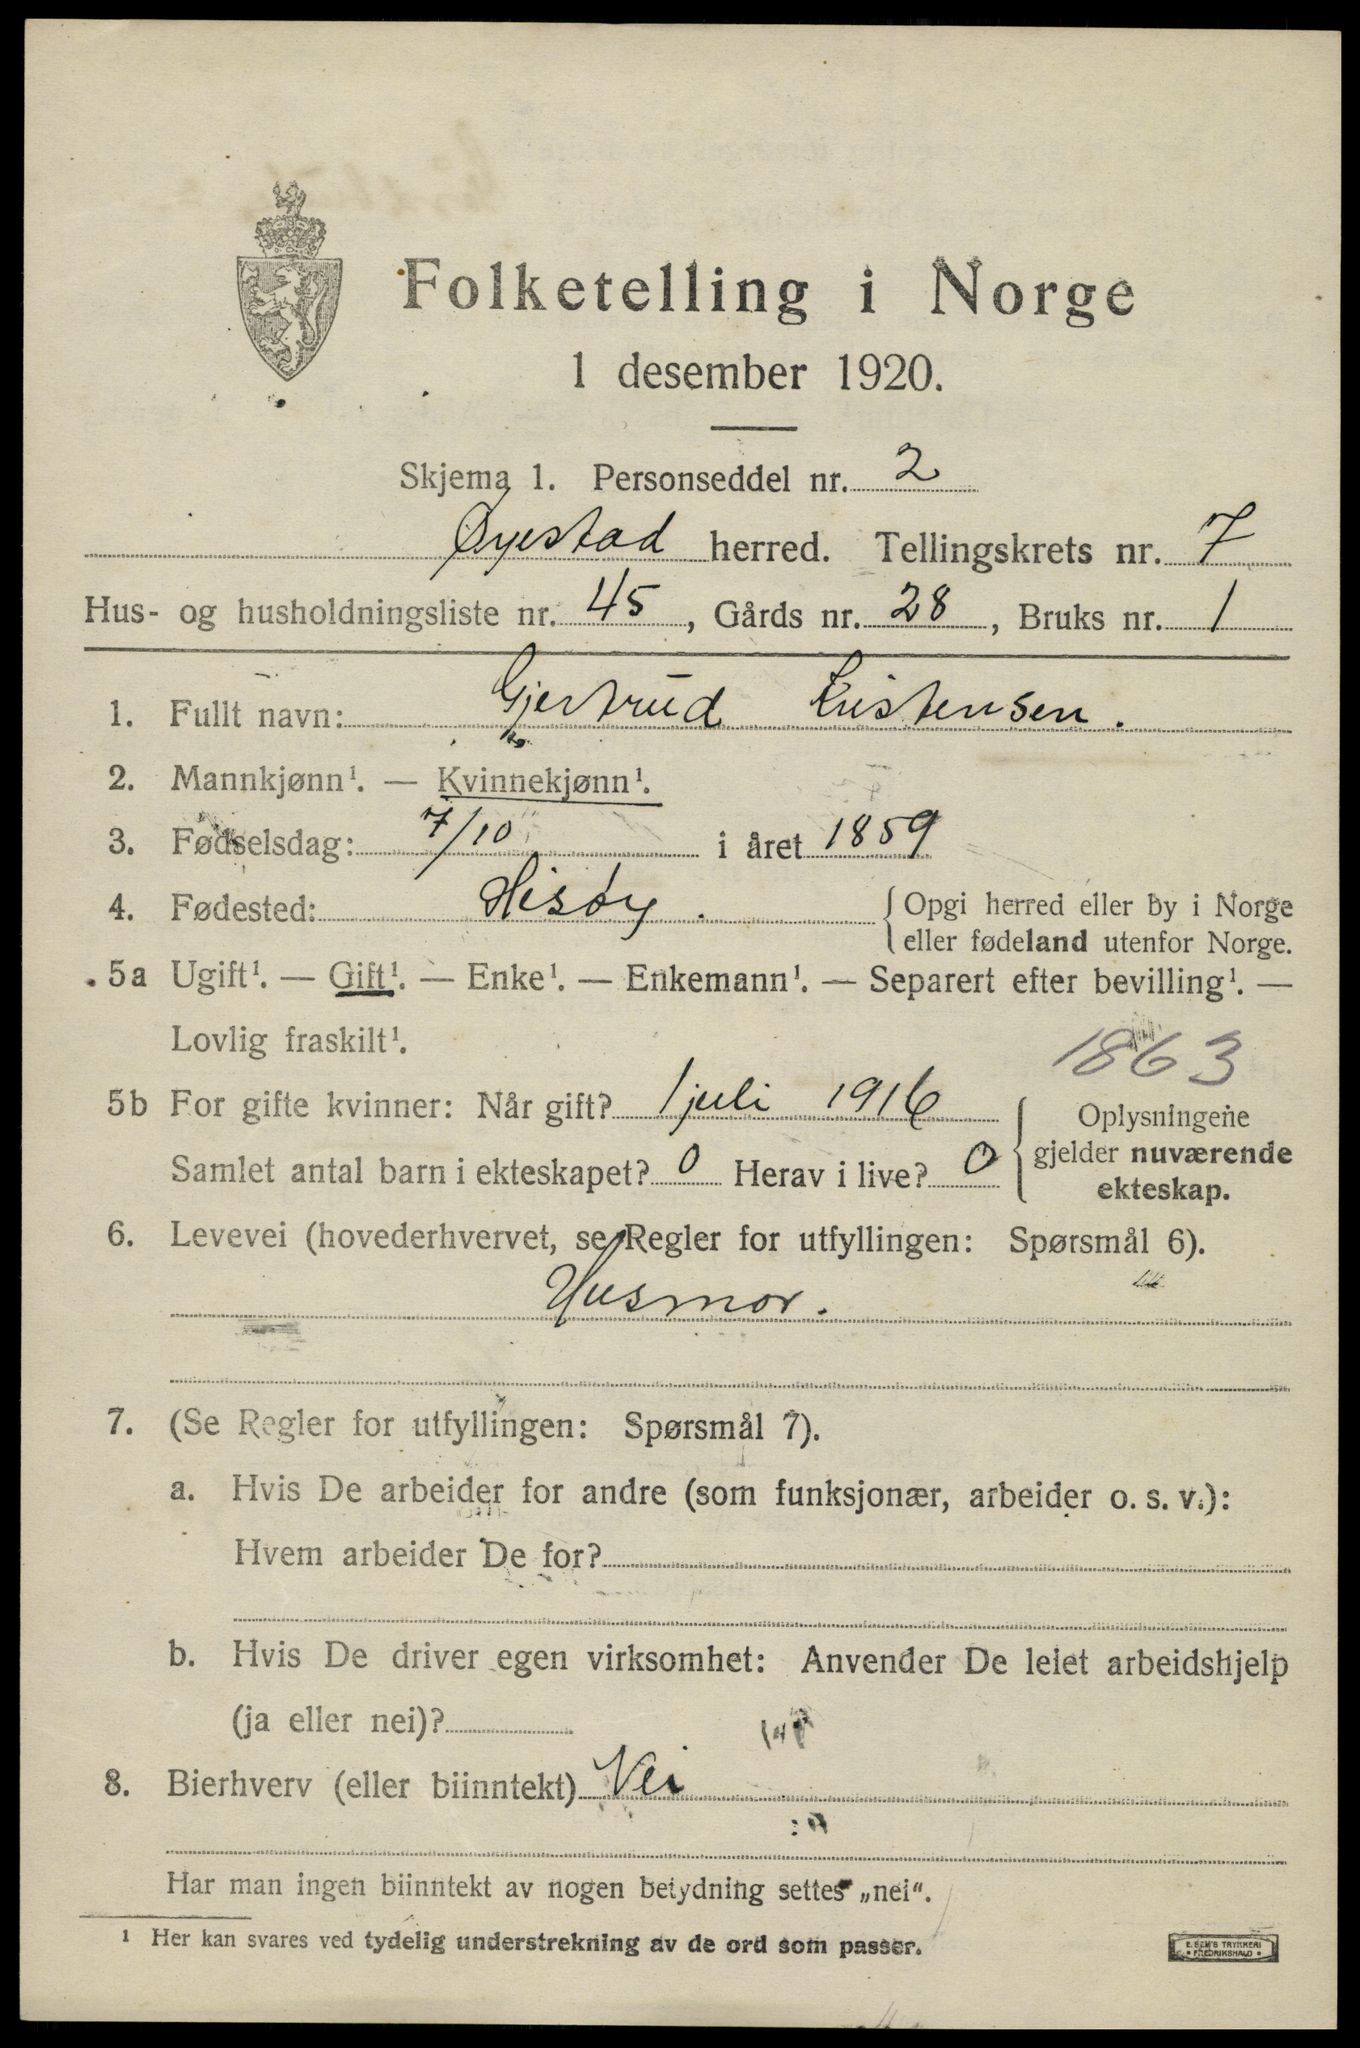 Folketelling i Norge
1 desember 1920.
Skjema 1. Personseddel nr. 2
Øyestad herred. Tellingskrets nr. 7
Hus- og husholdningsliste nr. 45, Gårds nr. 28, Bruks nr. 1
1. Fullt navn: Gjertrud Kristensen.
2. Mannkjønn¹. — Kvinnekjønn¹.
3. Fødselsdag: 7/10 i året 1859
4. Fødested: Hisöy. { Opgi herred eller by i Norge
eller fødeland utenfor Norge.
5a Ugift¹. — Gift¹. — Enke¹. — Enkemann¹. — Separert efter bevilling¹. —
Lovlig fraskilt¹.
1863
5b For gifte kvinner: Når gift? 1 juli 1916
Samlet antal barn i ekteskapet? 0 Herav i live? 0
Oplysningene
gjelder nuværende
ekteskap.
6. Levevei (hovederhvervet, se Regler for utfyllingen: Spørsmål 6).
Husmor.
7. (Se Regler for utfyllingen: Spørsmål 7).
a. Hvis De arbeider for andre (som funksjonær, arbeider o. s. v.):
Hvem arbeider De for?
b. Hvis De driver egen virksomhet: Anvender De leiet arbeidshjelp
(ja eller nei)?
8. Bierhverv (eller biinntekt) Nei
Har man ingen biinntekt av nogen betydning settes „nei“.
¹ Her kan svares ved tydelig understrekning av de ord som passer.
E. SEM'S TRYKKERI
• FREDRIKSHALD •